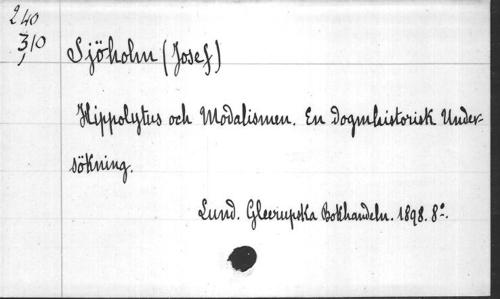 240
3,10
Sjöholm (Josef)
Hippolytus och Modalismen. En Dogmhistorisk Under-
sökning.
Lund. Gleerupska Bokhandeln. 1898. 8:o.